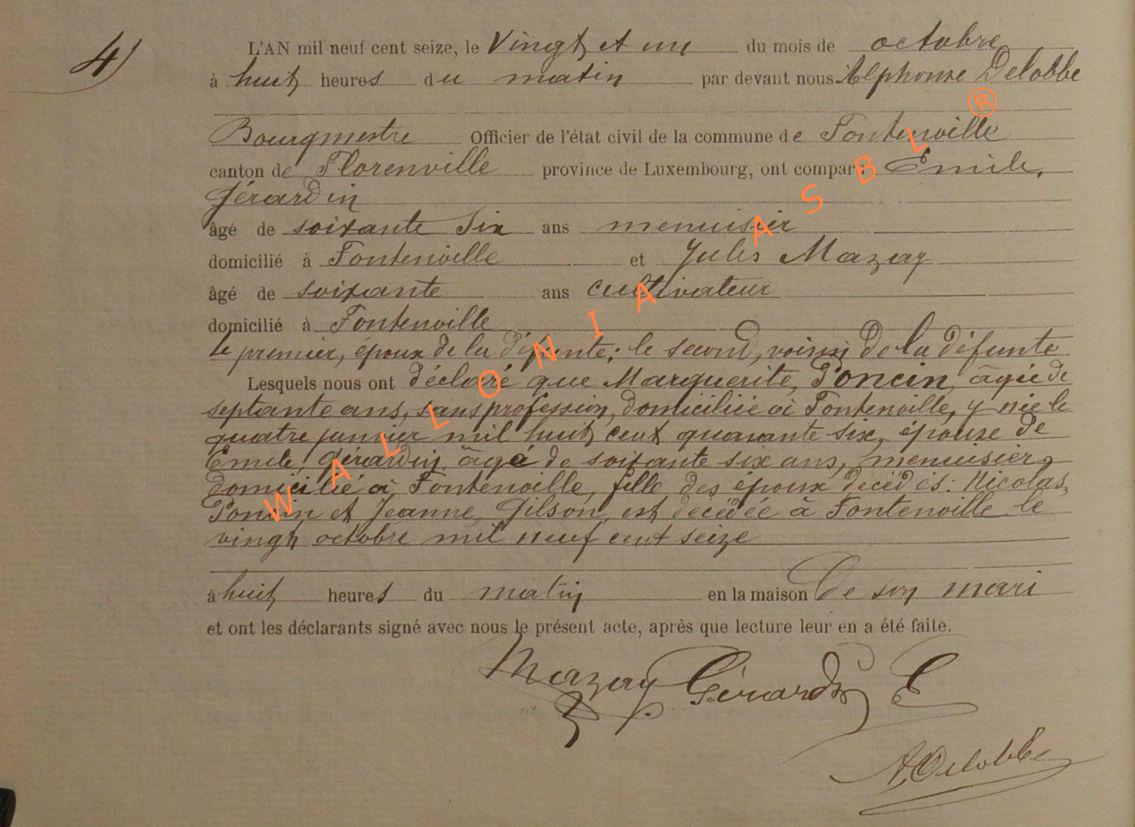 4)
L'AN mil neuf cent seize, le Vingt et un du mois de octobre
à huit heures du matin par devant nous Alphonse Delobbe
Bourgmestre Officier de l'état civil de la commune de Fontenoille
canton de Florenville province de Luxembourg, ont comparu Emile,
Gérardin
âgé de soixante six ans menuisier
domicilié à Fontenoille et Jules Mazay
âgé de soixante ans cultivateur
domicilié à Fontenoille
le premier, époux de la défunte; le second, voisin de la défunte
Lesquels nous ont déclaré que Marguerite, Poncin, âgée de
septante ans, sans profession, domiciliée à Fontenoille, y née le
quatre janvier mil huit cent quarante six, épouse de
Emile, Gérardin, âgé de soixante six ans, menuisier,
domicilié à Fontenoille, fille des époux décédés: Nicolas,
Poncin et Jeanne, Gilson, est décédée à Fontenoille le
vingt octobre mil neuf cent seize
à huit heures du matin en la maison de son mari
et ont les déclarants signé avec nous le présent acte, après que lecture leur en a été faite.
Mazay Gérardin E
A. Delobbe
WALLONIA ASBL ®